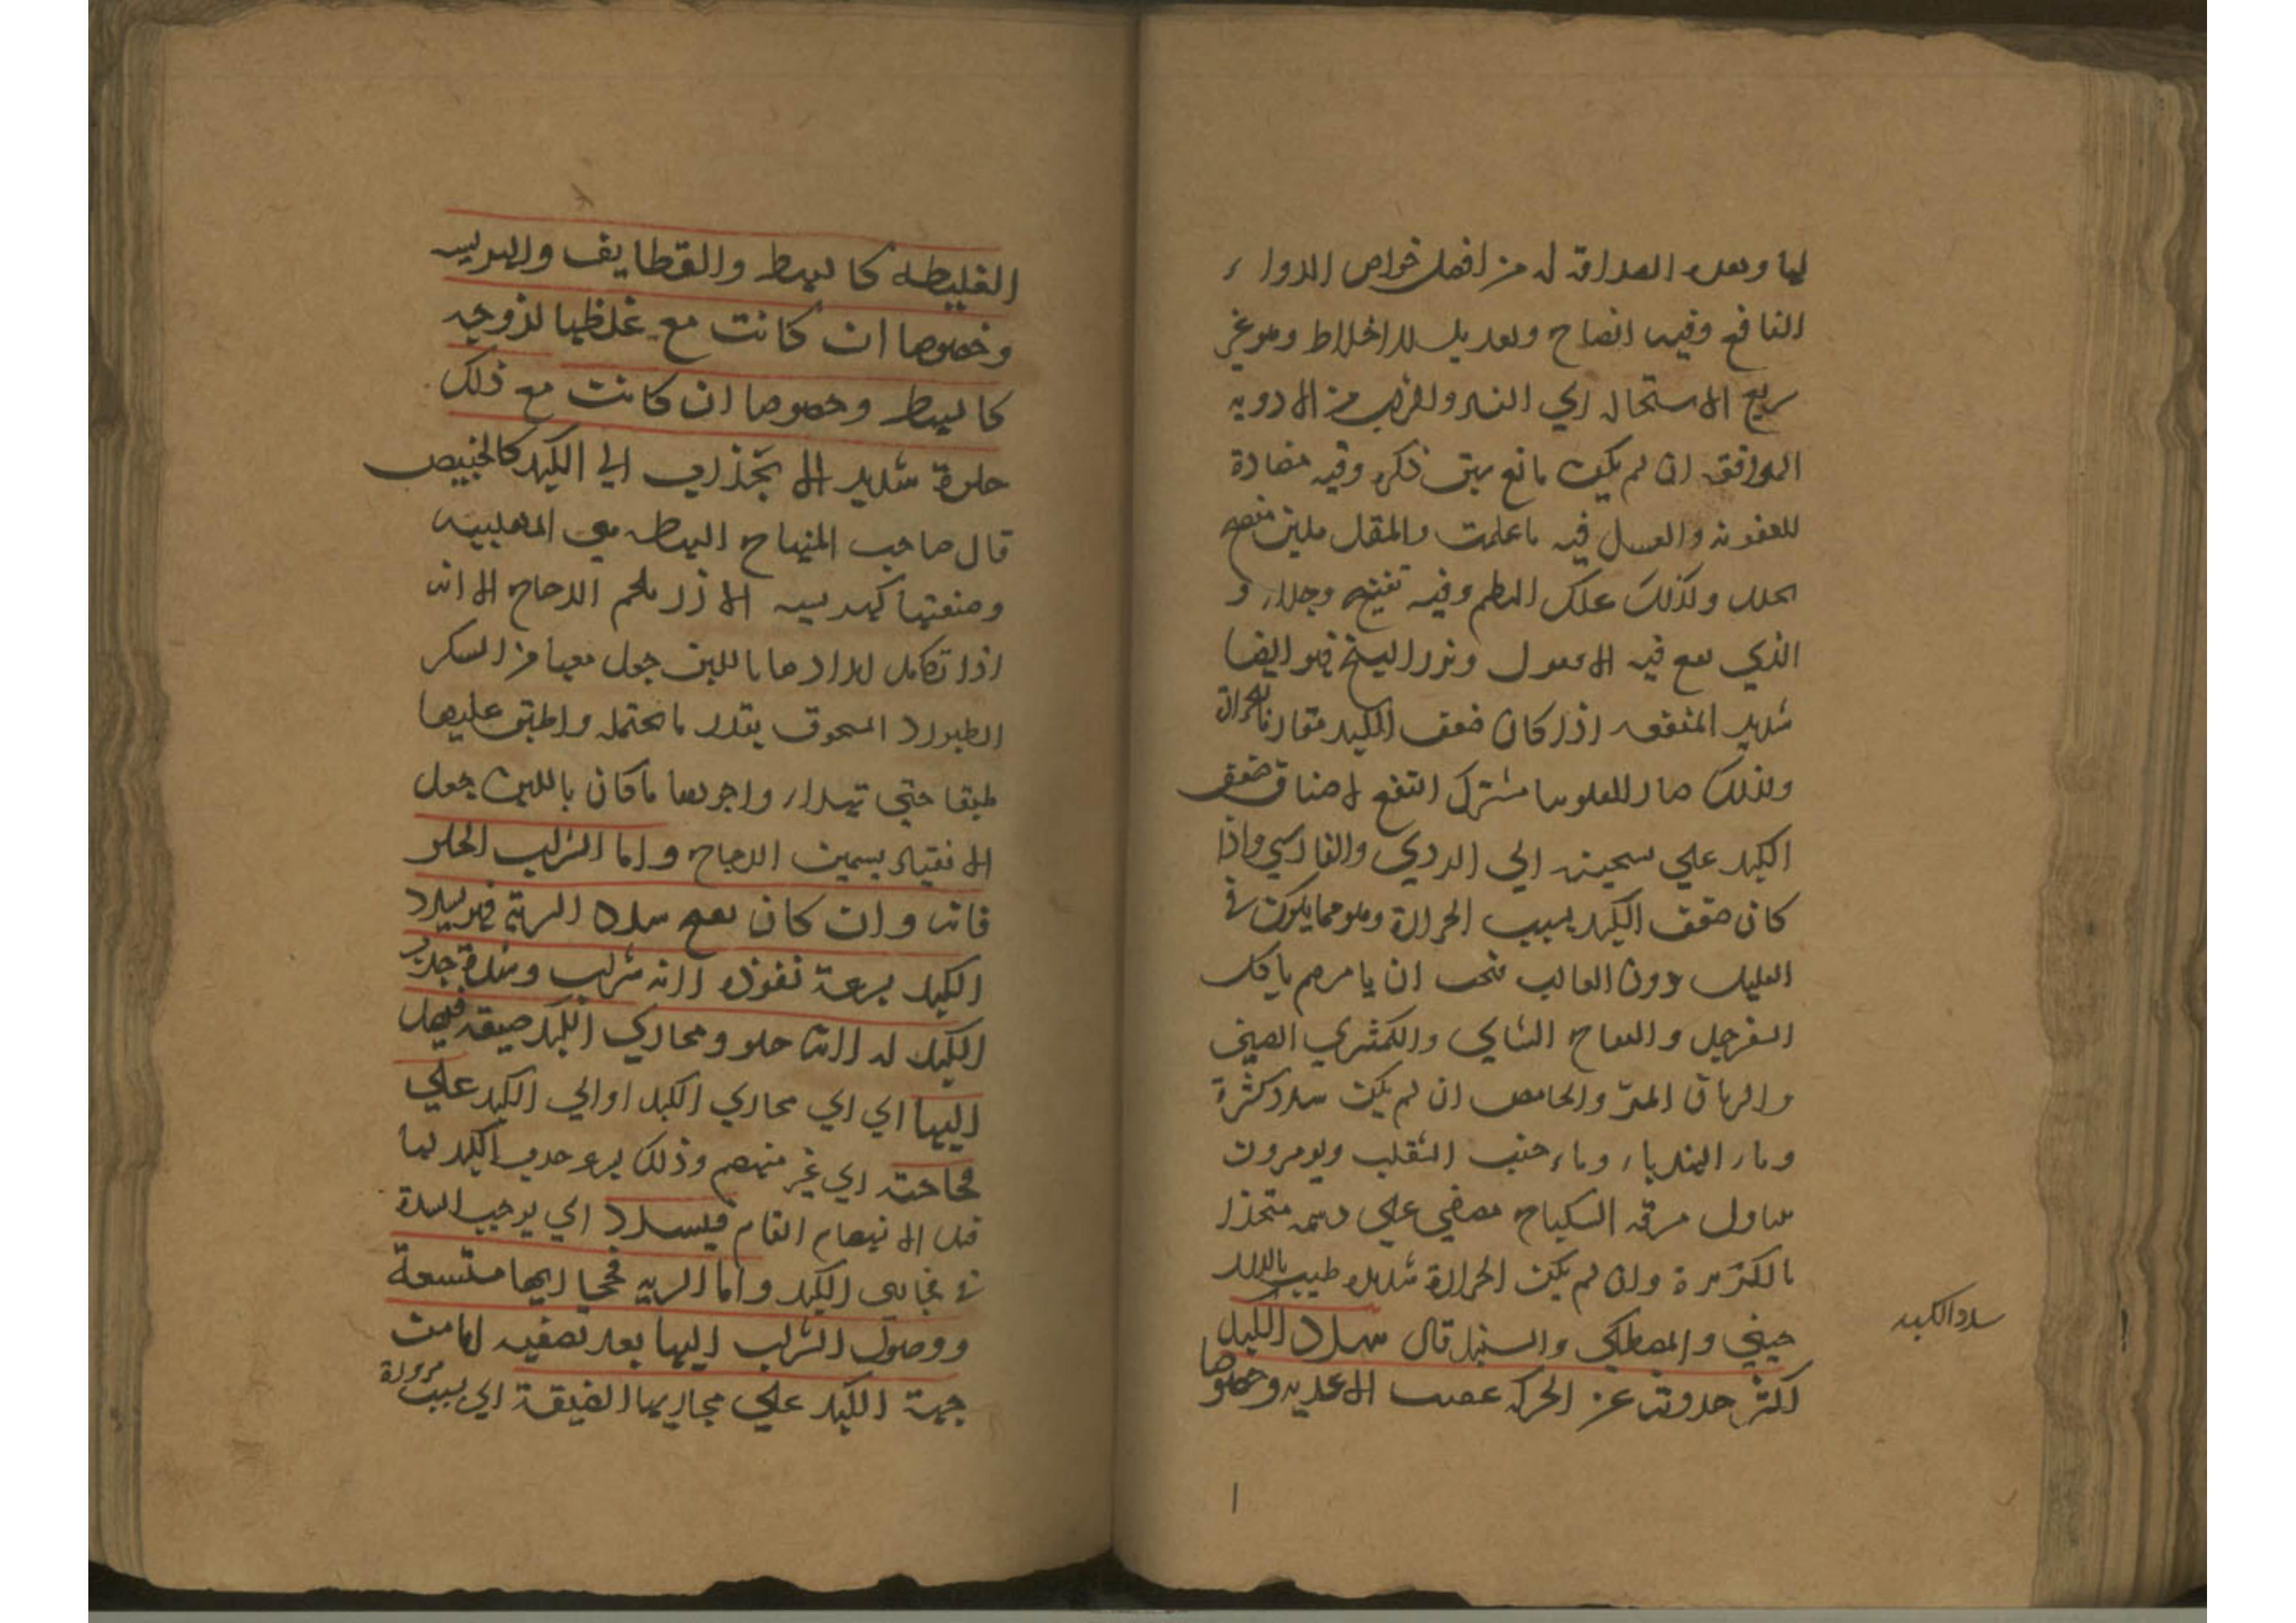 لها وبعده الصداقة له من افضل خواص الدواء
النافع وفيه انضاج وتعديل للاخلاط وهو غير
سريع الاستحالة الي الفساد والغرض من الادوية
الموافق ان لم يكن مانع سبق ذكره وفيه مضادة
للعفونة والعسل فيه ما علمت والمقل ملين منضج
محلل وكذلك علك البطم وفيه تفتيح وجلاء و
الذي يقع فيه الافيون وبزر البنج فهو ايضا
شديد المنفعه اذا كان ضعف الكبد مقارنا لحرارة
ولذلك صار للفلونيا مشترك النفع لاصناف ضعف
الكبد علي سحنته الي الرومي والفارسي واذا
كان ضعف الكبد بسبب الحرارة وهو مما يكون في
القليل دون الغالب فيجب ان يامرهم باكل
السفرجل والتفاح الشامي والكمثري الصيني
والرمان المز والحامض ان لم يكن سدد كثيرة
وماء الهندباء وماء عنب الثعلب ويومرون
بتناول مرقة السكباج مصفي علي دسمه متخذا
بالكزبرة وان لم يكن الحرارة شديدة طيب بالدار
صيني والمصطكي والسنبل قال سدد الكبد
اكثر حدوثه عن الحركة عقيب الاغذيه وخصوصا
سدد الكبد
الغليطه كالبهط والقطايف والهريسه
وخصوصا ان كانت مع غلظها لزوجه
كالبهط وخصوصا ان كانت مع ذلك
حلوة شديد الانجذاب الي الكبد كالخبيص
قال صاحب المنهاج البهطه هي المهلبيه
وصنعتها كهريسه الارز بلحم الدجاج الا انه
اذا تكامل امدادها باللبن جعل معها من السكر
الطبرزد المسحوق بقدر ما تحتمله واطبق عليها
طبقا حتي تهدا، واجودها ما كان باللبن جعل
الانقياد بسمين الدجاج واما الشراب الحلو
فانه وان كان يفتح سدد الرية فهو يسدد
الكبد لسرعة نفوذه لانه شراب وشدة جذب
الكبد له لانه حلو ومجاري الكبد ضيقه فيصل
اليها اي الي مجاري الكبد او الي الكبد علي
فجاجته اي غير منهضم وذلك لسرعة جذب الكبد لها
قبل الانهضام التام فيسدد اي يوجب السدة
في مجاري الكبد واما الريه فمجاريها متسعة
ووصول الشراب اليها بعد تصفيه لها من
جهة الكبد علي مجاريها الضيقة اي بسبب مروره